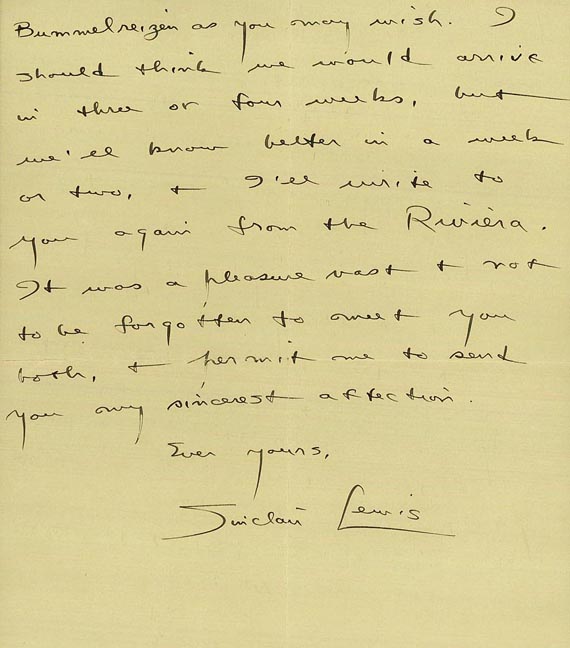 Bummelreizen as you may wish. I
should think we would arrive
in three or four weeks, but
we'll know better in a week
or two, + I'll write to
you again from the Riviera.
It was a pleasure vast + not
to be forgotten to meet you
both, + permit me to send
you my sincerest affection.
Ever yours,
Sinclair Lewis